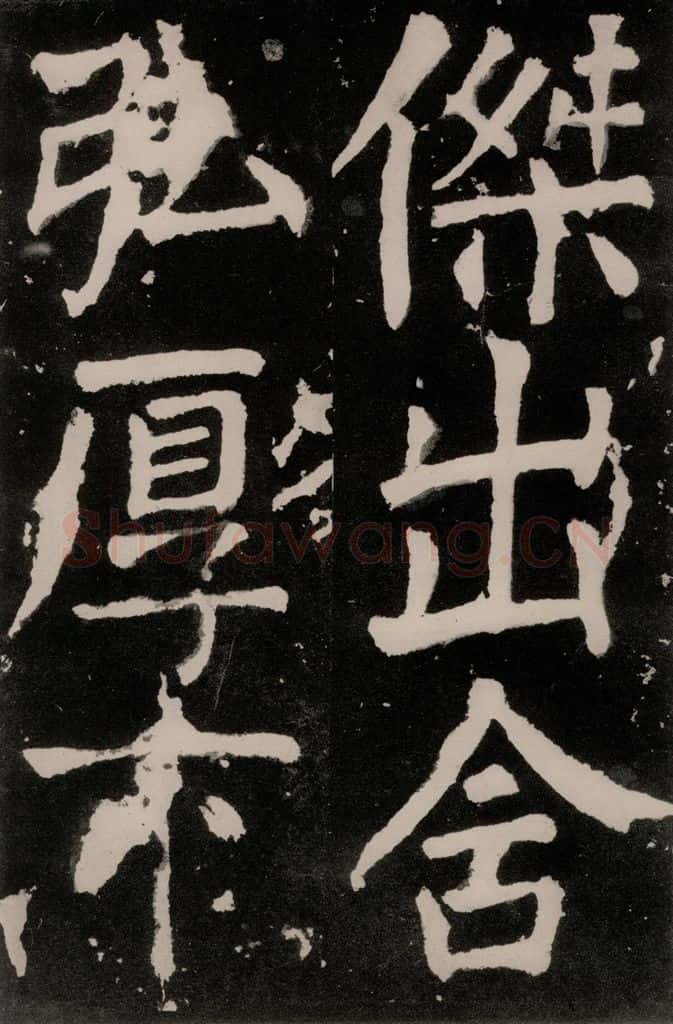 傑出含
弘厚木
Shufawang.CN